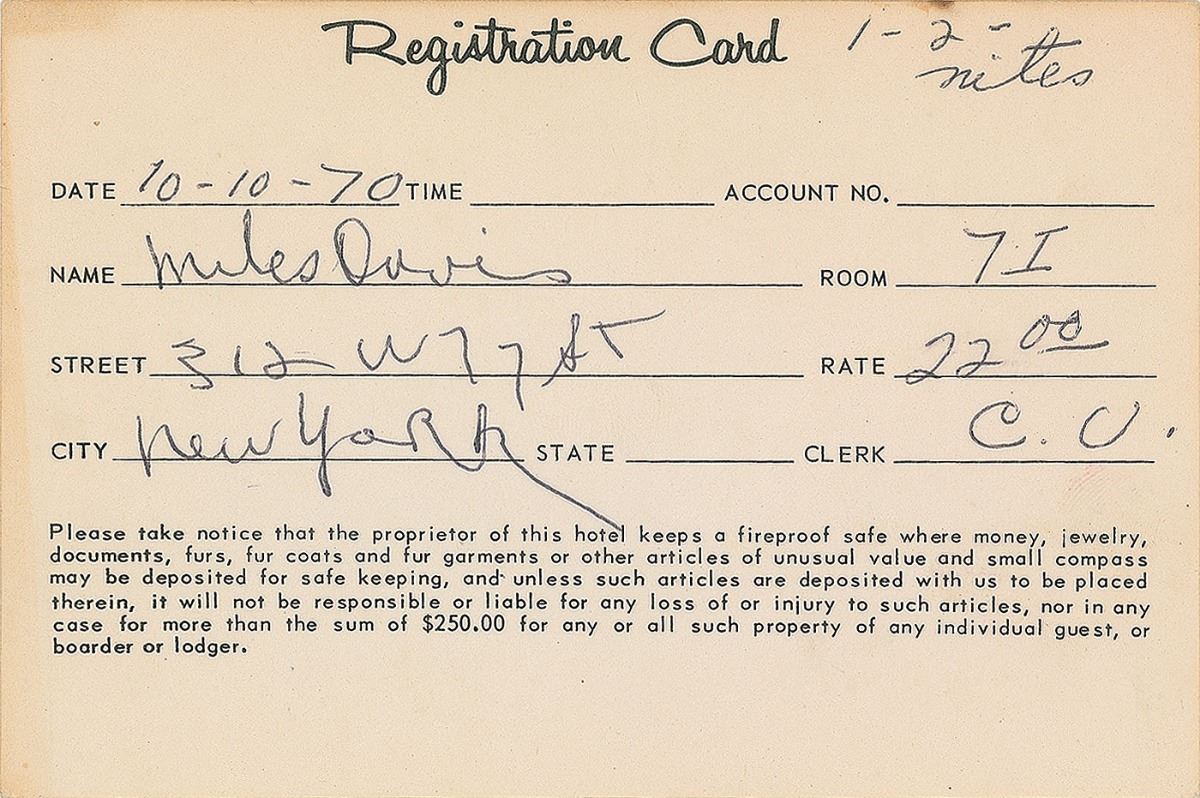 Registration Card 1-2-
nites
DATE 10-10-70 TIME ACCOUNT NO.
NAME Miles Davis ROOM 7I
STREET 312 W 77 St RATE 22 00
CITY New York STATE CLERK C. U.
Please take notice that the proprietor of this hotel keeps a fireproof safe where money, jewelry,
documents, furs, fur coats and fur garments or other articles of unusual value and small compass
may be deposited for safe keeping, and unless such articles are deposited with us to be placed
therein, it will not be responsible or liable for any loss of or injury to such articles, nor in any
case for more than the sum of $250.00 for any or all such property of any individual guest, or
boarder or lodger.